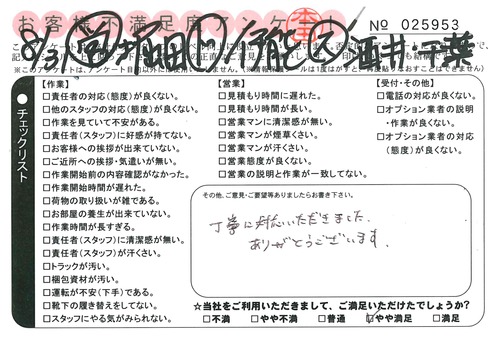 お客様不満足度アンケ
№ 025953
8/3
酒井・千葉
※このアンケートは、アンケート目的以外には使用いたしません。
チェックリスト
【作業】
□責任者の対応(態度)が良くない。
□他のスタッフの対応(態度)が良くない。
□作業を見ていて不安がある。
□責任者(スタッフ)に好感が持てない。
□お客様への挨拶が出来ていない。
□ご近所への挨拶・気遣いが無い。
□作業開始前の内容確認がなかった。
□作業開始時間が遅れた。
□荷物の取り扱いが雑である。
□お部屋の養生が出来ていない。
□作業時間が長すぎる。
□責任者(スタッフ)に清潔感が無い。
□責任者(スタッフ)が汗くさい。
□トラックが汚い。
□梱包資材が汚い。
□運転が不安(下手)である。
□靴下の履き替えをしてない。
□スタッフにやる気がみられない。
【営業】
□見積もり時間に遅れた。
□見積もり時間が長い。
□営業マンに清潔感が無い。
□営業マンが煙草くさい。
□営業マンが汗くさい。
□営業態度が良くない。
□営業の説明と作業が一致してない。
【受付・その他】
□電話の対応が良くない。
□オプション業者の説明
・作業が良くない。
□オプション業者の対応
(態度)が良くない。
その他、ご意見・ご要望等ありましたらお書き下さい。
丁寧に対応いただきました。
ありがとうございます。
☆当社をご利用いただきまして、ご満足いただけたでしょうか?
□不満 □やや不満 □普通 ☑やや満足 □満足